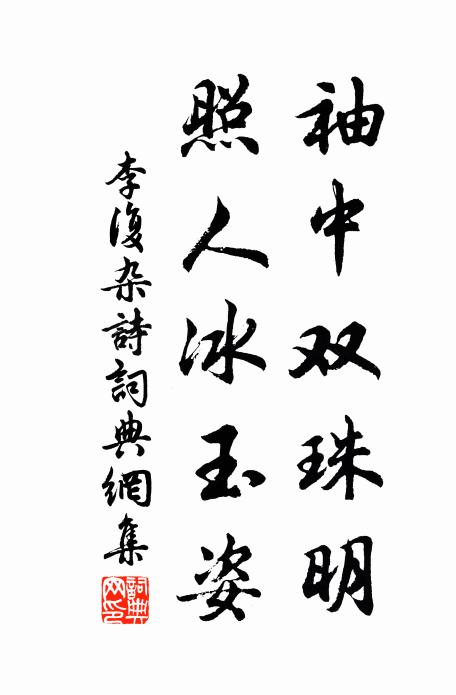 袖中双珠明
照人冰玉姿
李復杂詩詞典網集
詞典網印